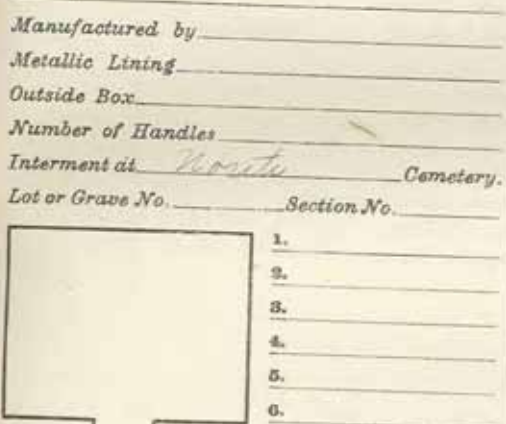 Manufactured by
Metallic Lining
Outside Box
Number of Handles
Interment at Cemetery.
Lot or Grave No. Section No.
1.
2.
3.
4.
5.
6.